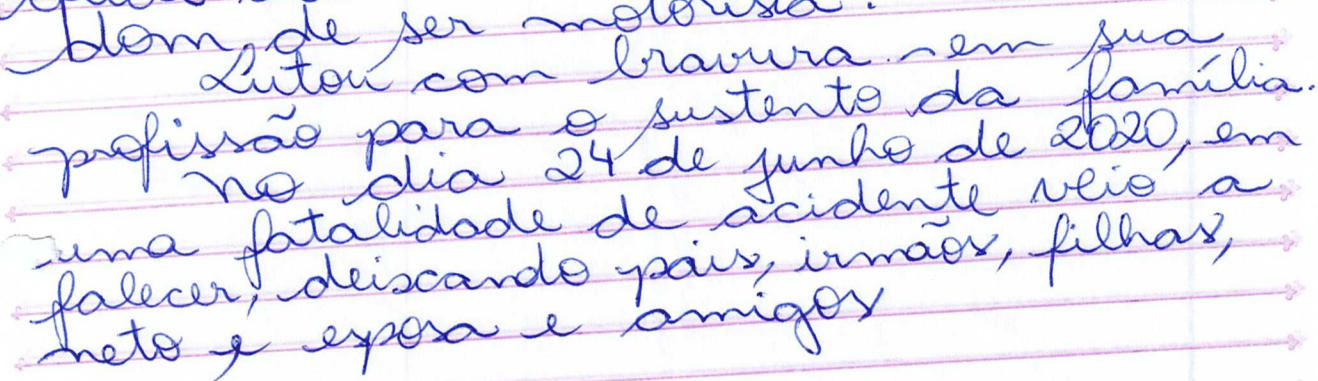 dom, de ser motorista.
Lutou com bravura em sua
profissão para o sustento da família.
No dia 24 de junho de 2020, em
uma fatalidade de acidente veio a
falecer, deixando pais, irmãos, filhas,
neto e esposa e amigos